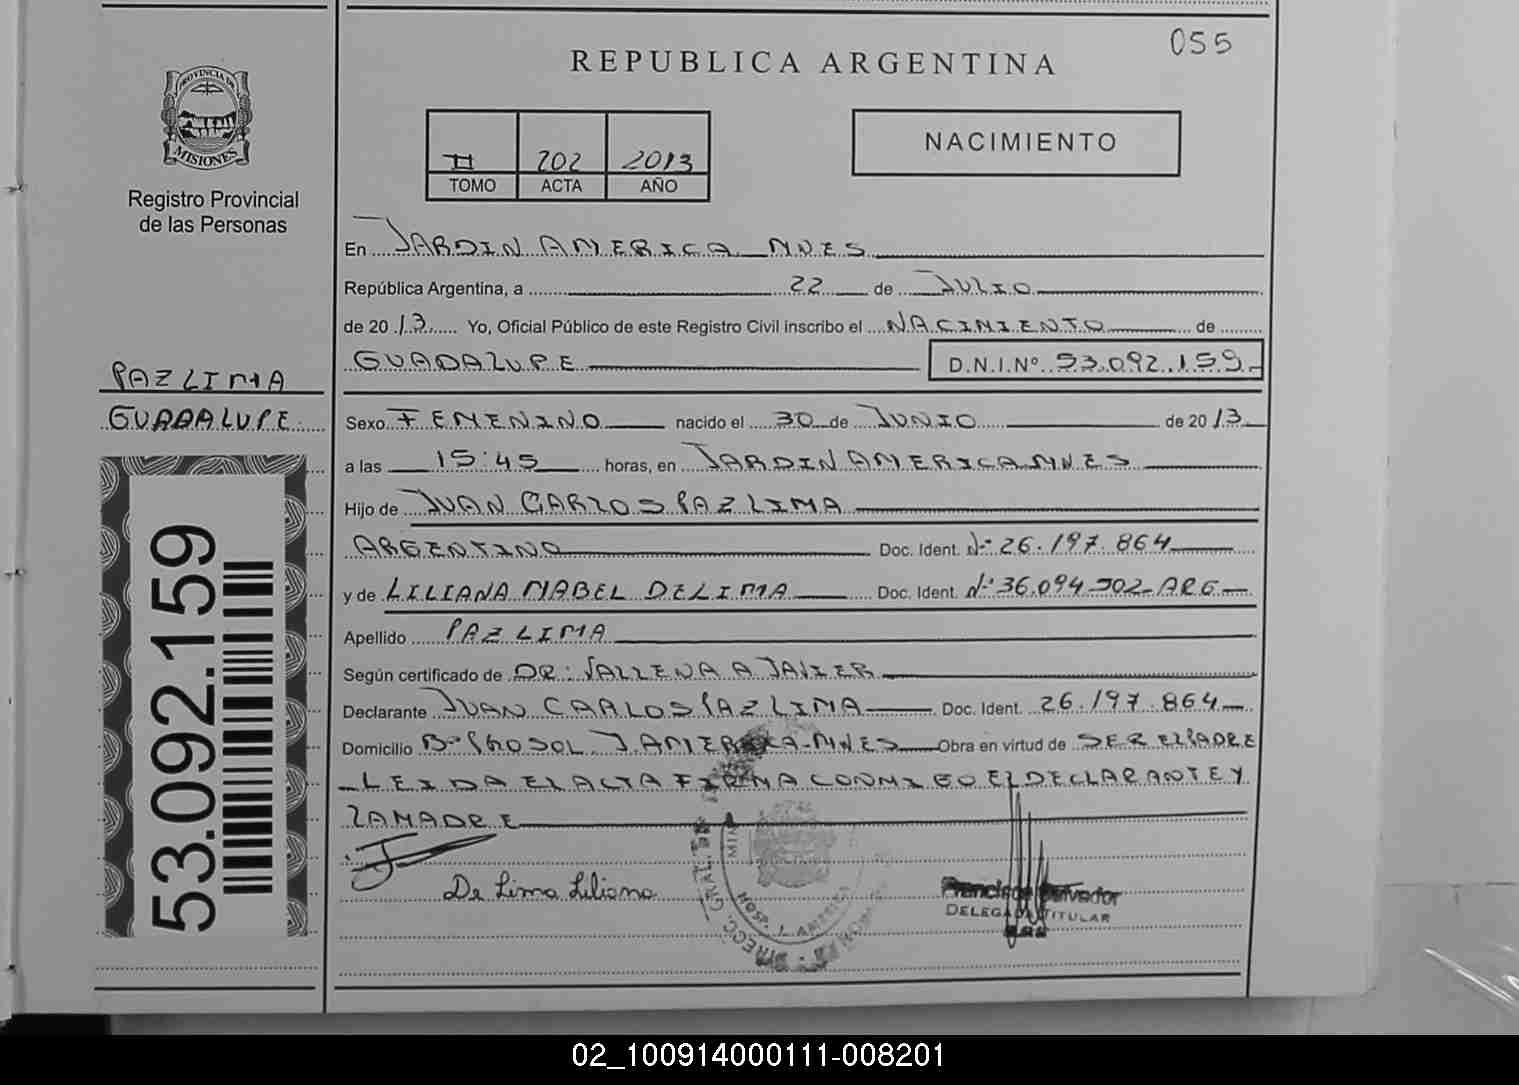 055
REPUBLICA ARGENTINA
PROVINCIA DE
MISIONES
Registro Provincial
de las Personas
II 202 2013
TOMO ACTA AÑO
NACIMIENTO
En JARDIN AMERICA MNES
República Argentina, a 22 de JULIO
de 2013 Yo, Oficial Público de este Registro Civil inscribo el NACIMIENTO de
GUADALUPE D.N.I.Nº 53.092.159
PAZ LIMA
GUADALUPE
Sexo FEMENINO nacido el 30 de JUNIO de 2013
a las 15:45 horas, en JARDIN AMERICA MNES
Hijo de JUAN CARLOS PAZ LIMA
ARGENTINO Doc. Ident. Nº 26.197.864
y de LILIANA MABEL DE LIMA Doc. Ident. Nº 36.094.302 - ARG
Apellido PAZ LIMA
Según certificado de DR: VALLENA A JAVIER
Declarante JUAN CARLOS PAZ LIMA Doc. Ident. 26.197.864
Domicilio Bº PROSOL J. AMERICA - MNES Obra en virtud de SER EL PADRE
LEIDA EL ACTA FIRMA CONMIGO EL DECLARANTE Y
LA MADRE
53.092.159
De Lima Liliana
DIRECC. GRAL. DE
HOSP. J. AMERICA
Francisco Salvador
DELEGADO TITULAR
02_100914000111-008201